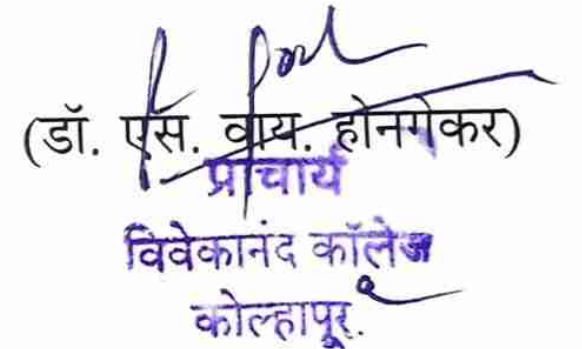 (डॉ. एस. वाय. होनगेकर)
प्राचार्य
विवेकानंद कॉलेज
कोल्हापूर.